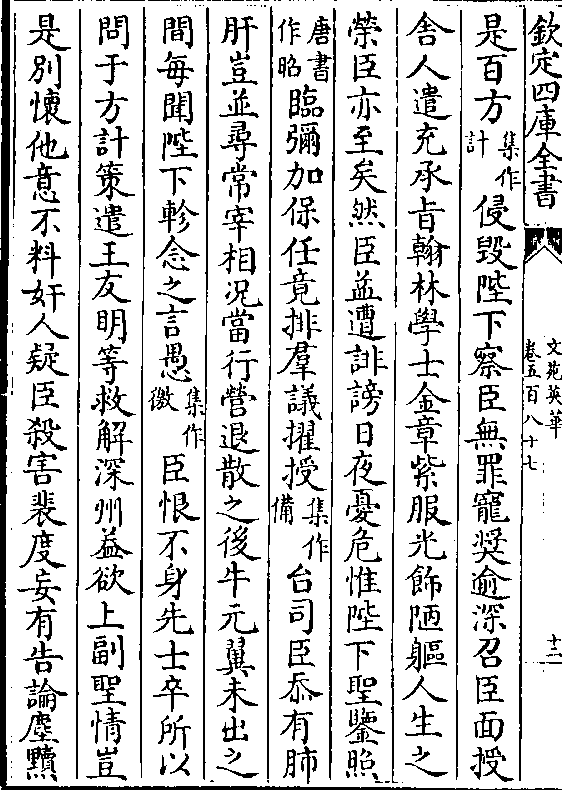 欽定四庫全書
文苑英華
卷五百八十七
十二
是百方集作計侵毀陛下察臣無罪寵奬逾深召臣面授
舍人遣充承㫖翰林學士金章紫服光飾陋軀人生之
榮臣亦至矣然臣益遭誹謗日夜憂危惟陛下聖鑒照
唐書作昭臨彌加保任竟排羣議擢授集作備台司臣忝有肺
肝豈並尋常宰相况當行營退散之後牛元翼未出之
間每聞陛下軫念之言愚集作徼臣恨不身先士卒所以
問于方計策遣王友明等救解深州益欲上副聖情豈
是別懷他意不料奸人疑臣殺害裴度妄有告論塵黷